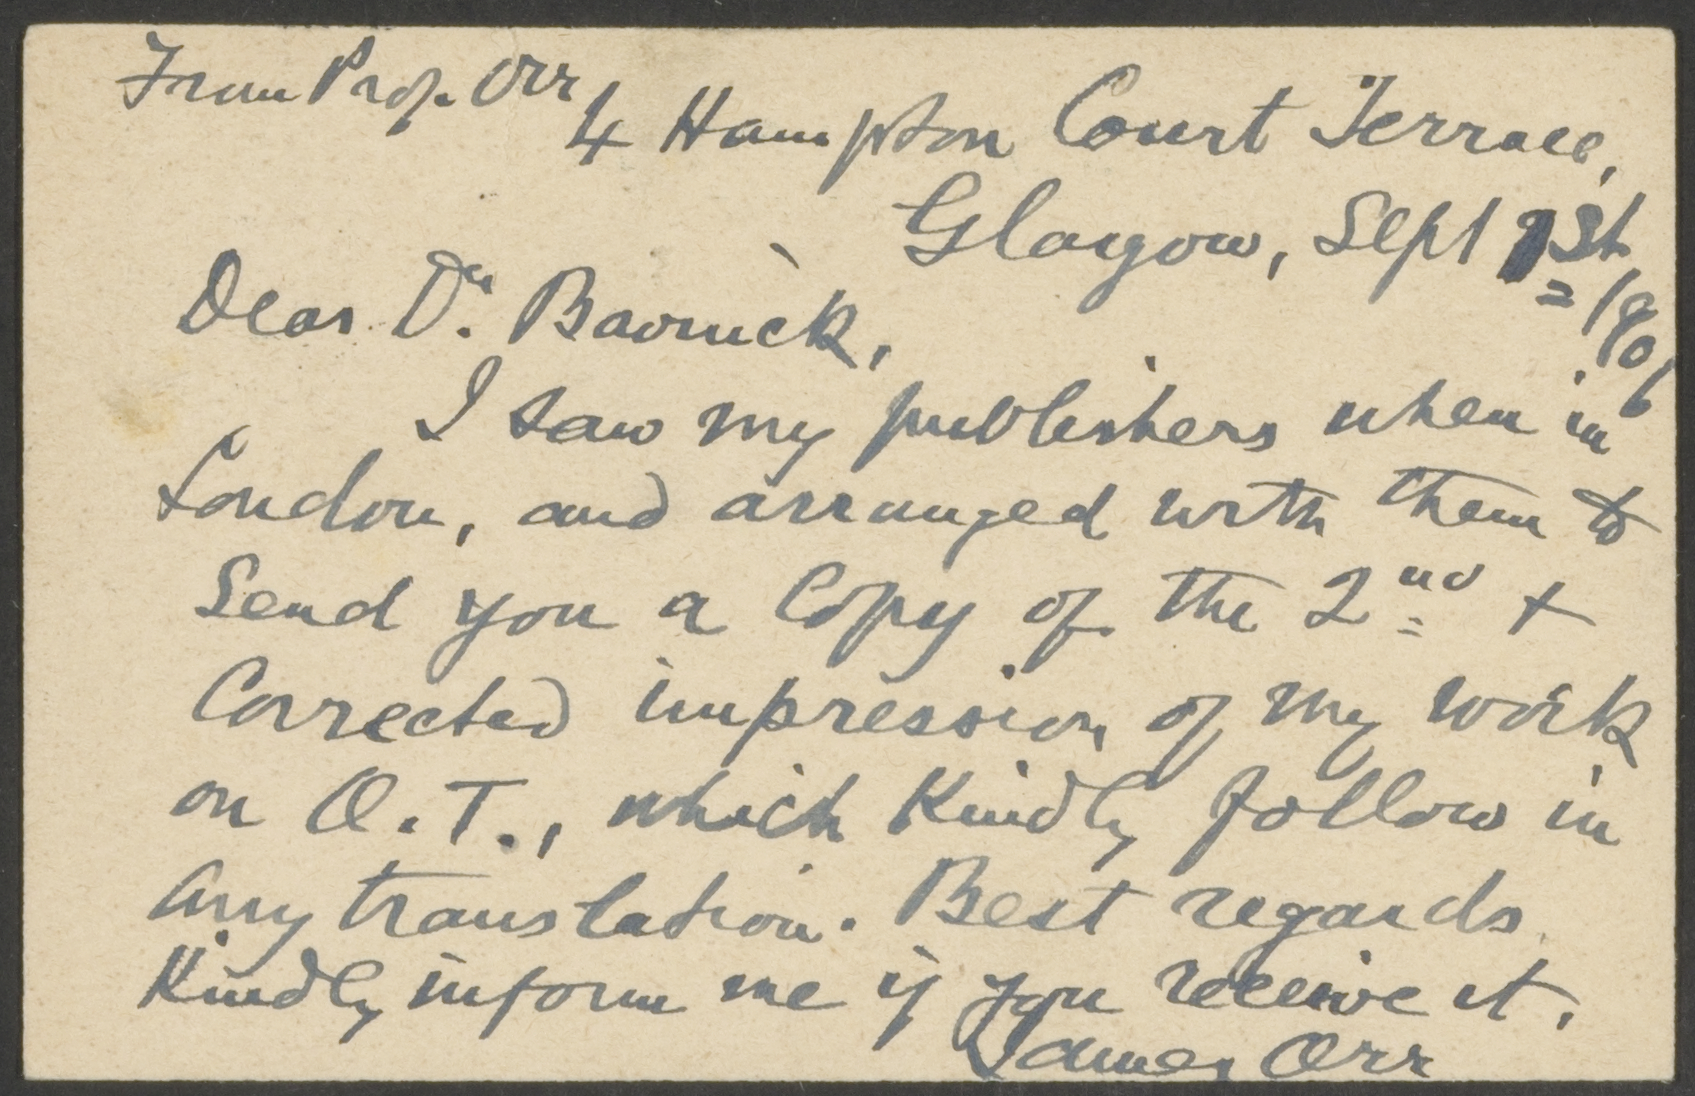 From Prof. Orr
4 Hampton Court Terrace,
Glasgow, Sept 1st
1906
Dear Dr. Bavinck,
I saw my publishers when in
London, and arranged with them to
send you a copy of the 2nd +
corrected impression of my work
on O.T., which kindly follow in
any translation. Best regards
Kindly inform me if you receive it.
James Orr